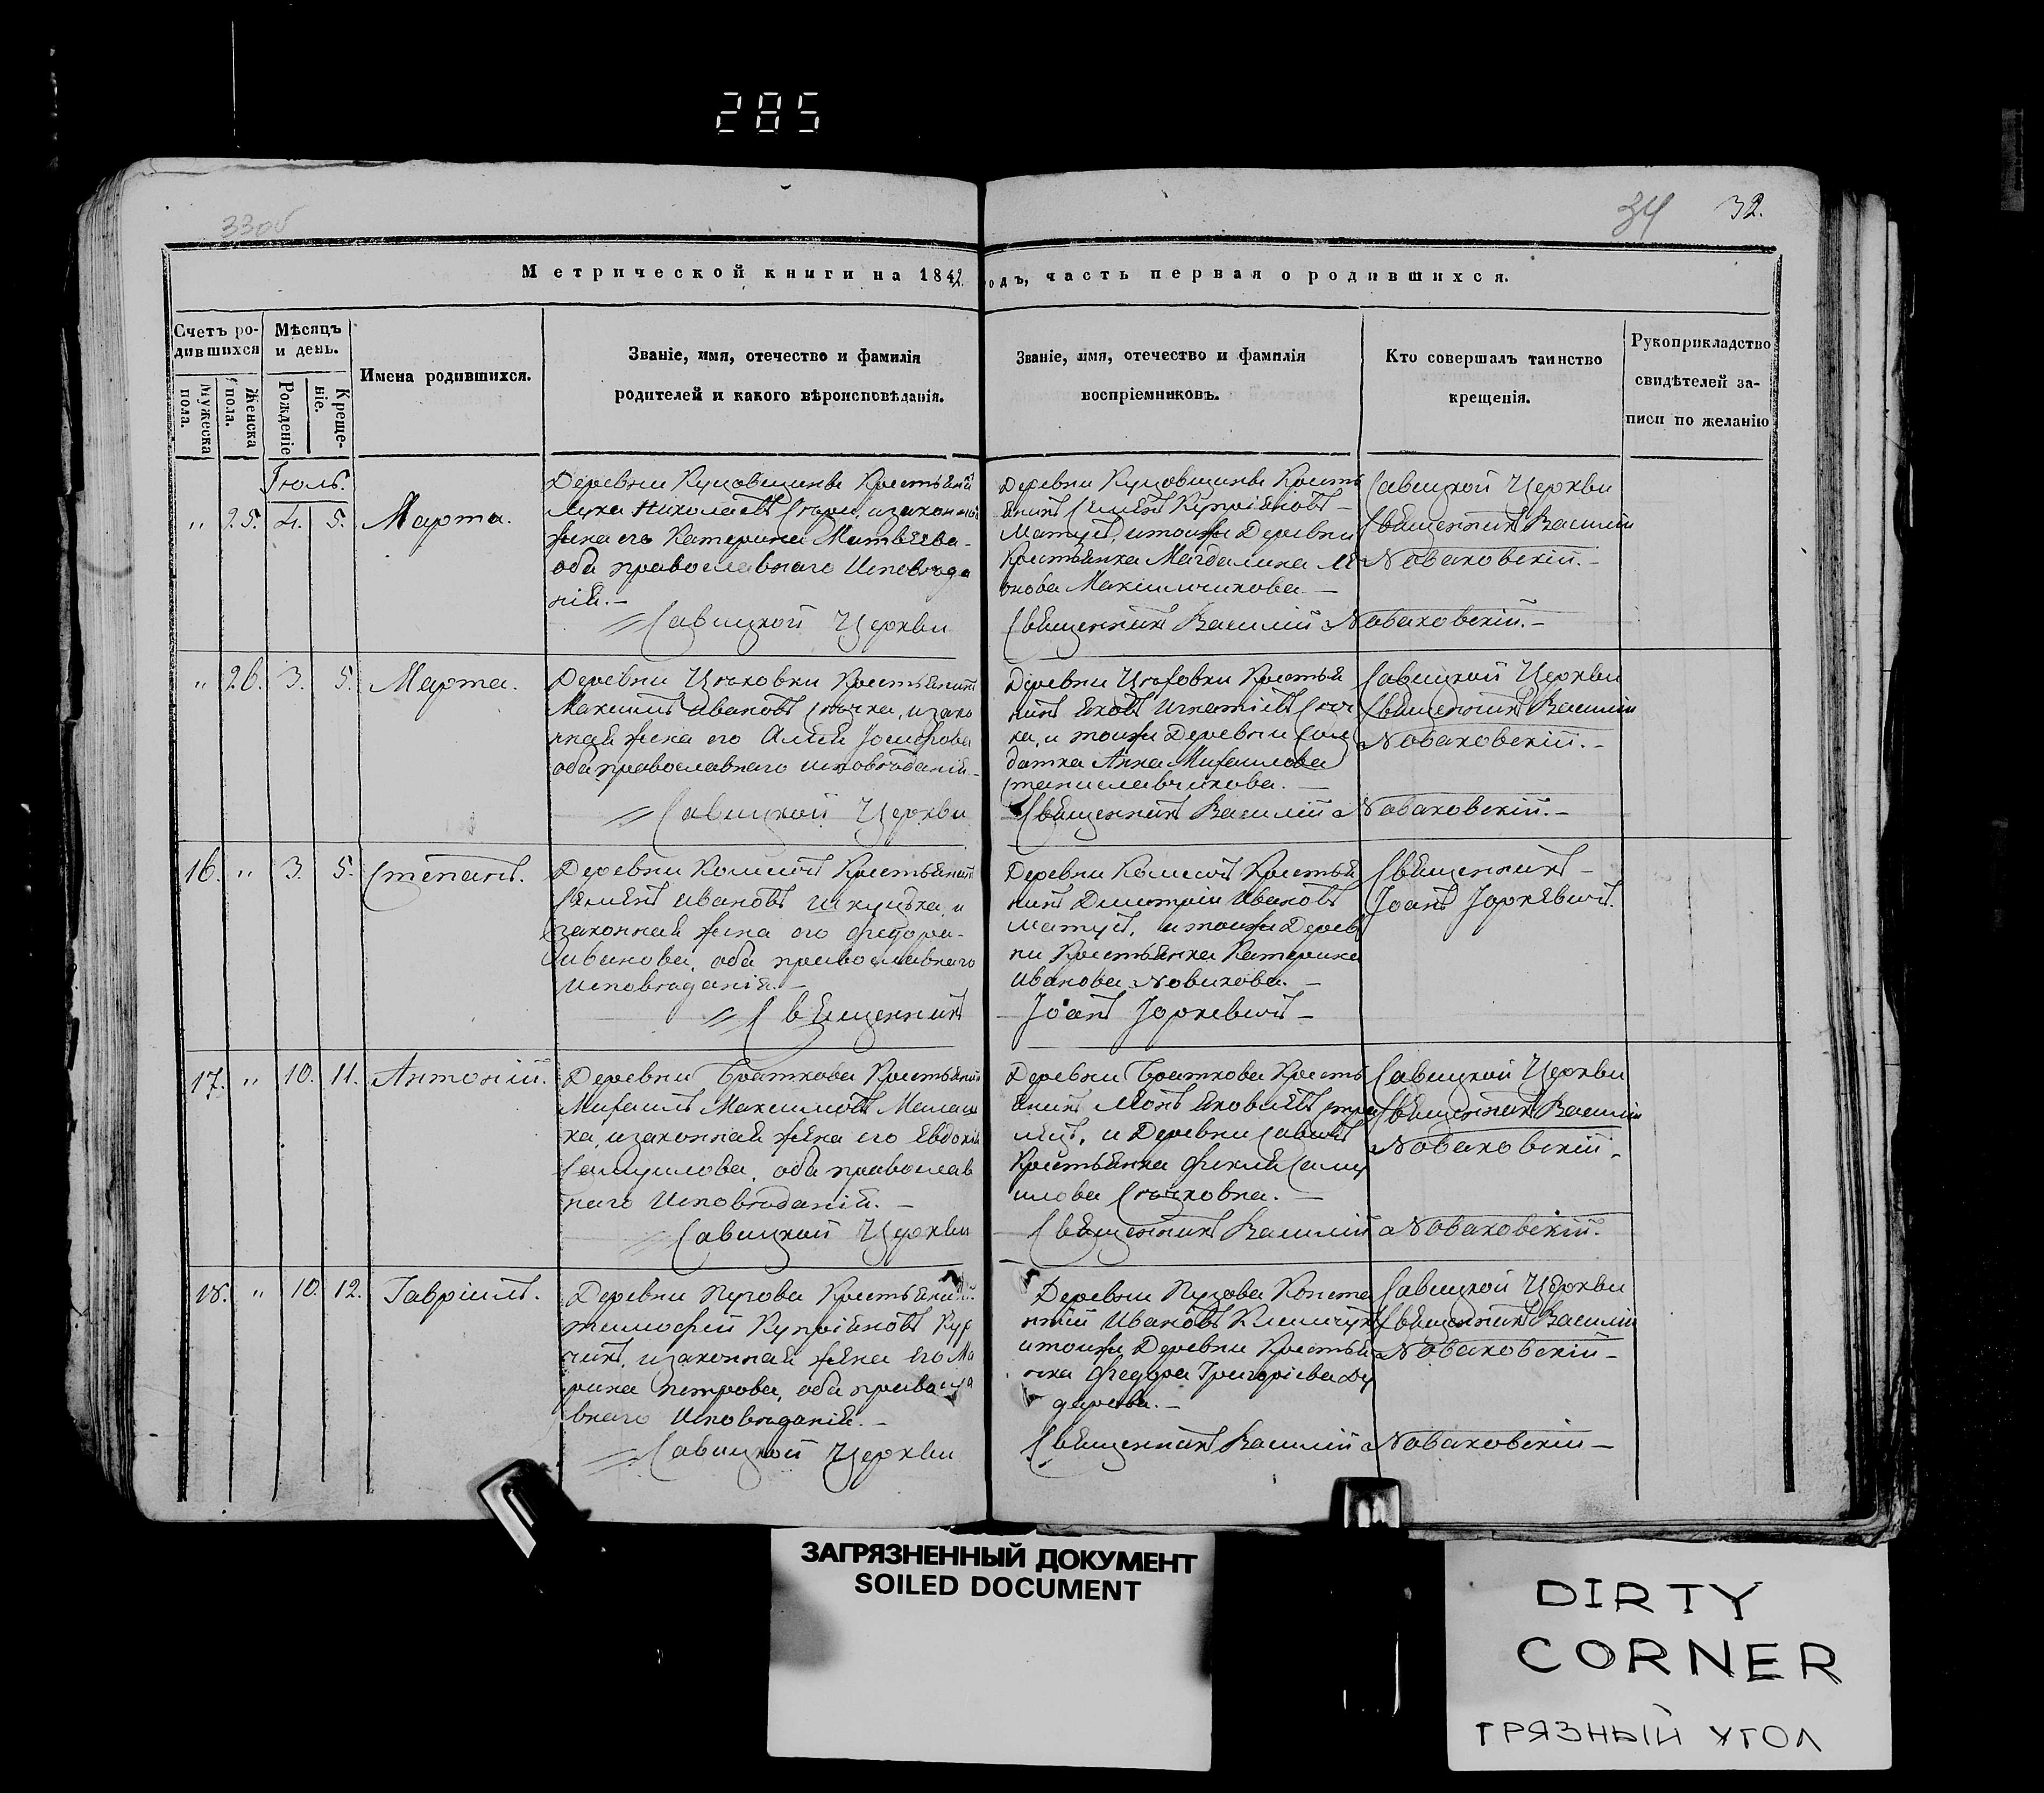 285
33об
34 32.
Метрической книги на 1842 годъ, часть первая о родившихся.
Счетъ родившихся
Мужеска пола.
Женска пола.
Мѣсяцъ и день.
Рожденіе
Крещеніе.
Имена родившихся.
Званіе, имя, отечество и фамилія
родителей и какого вѣроисповѣданія.
Званіе, имя, отечество и фамилія
воспріемниковъ.
Кто совершалъ таинство
крещенія.
Рукоприкладство
свидѣтелей за-
писи по желанію
Іюль.
" 25. 4. 5. Марта.
Деревни Куцовщины Крестьянинъ
Лука Николаевъ, и законная
жена его Катерина Матвѣева
оба православнаго Исповѣда
нія.
Деревни Куцовщины Кресть
янинъ Семенъ Купріяновъ
Матусъ, и тойже Деревни
Крестьянка Магдалина Ле
онова Максимчикова.
Савицкой Церкви
Священникъ Василій
Новаковскій.
Савицкой Церкви Священникъ Василій Новаковскій.
" 26. 3. 5. Марта.
Деревни Цыгновки Крестьянинъ
Максимъ Ивановъ Сычка, и зако
нная жена его Іосифова
оба православнаго исповѣданія.
Деревни Крестья
нинъ Яковъ Игнатьевъ Сыч
ка, и тойже Деревни Сол
датка Анна Михаилова
Станиславчикова.
Савицкой Церкви
Священникъ Василій
Новаковскій.
Савицкой Церкви Священникъ Василій Новаковскій.
16. " 3. 5. Степанъ.
Деревни Крестьянинъ
Семенъ Ивановъ Шкуцька, и
законная жена его Федора
Иванова, оба православнаго
Исповѣданія.
Деревни Крестья
нинъ Дмитрій Ивановъ
Матусъ, и тойже Дерев
ни Крестьянка Катерина
Иванова Новикова.
Священникъ
Іоанъ Юркевичъ.
Священникъ Іоанъ Юркевичъ
17. " 10. 11. Антоній.
Деревни Браткова Крестьянинъ
Михаилъ Максимовъ Малаш
ка, и законная жена его Евдокія
Самуилова, оба православ
наго Исповѣданія.
Деревни Браткова Кресть
янинъ Леонъ Яковлевъ
и Деревни Савичъ
Крестьянка Фекла Саму
илова Сычковна.
Савицкой Церкви
Священникъ Василій
Новаковскій.
Савицкой Церкви Священникъ Василій Новаковскій.
18. " 10. 12. Гавріилъ.
Деревни Пузова Крестьянинъ
Тимофей Купріяновъ Кур
чикъ, и законная жена его Ма
рина Петрова, оба правосла
внаго Исповѣданія.
Деревни Пузова Конста
нтій Ивановъ Климчукъ
и тойже Деревни Крестья
нка Федора Григоріева Ду
дарева.
Савицкой Церкви
Священникъ Василій
Новаковскій
Савицкой Церкви Священникъ Василій Новаковскій
ЗАГРЯЗНЕННЫЙ ДОКУМЕНТ
SOILED DOCUMENT
DIRTY
CORNER
ГРЯЗНЫЙ УГОЛ